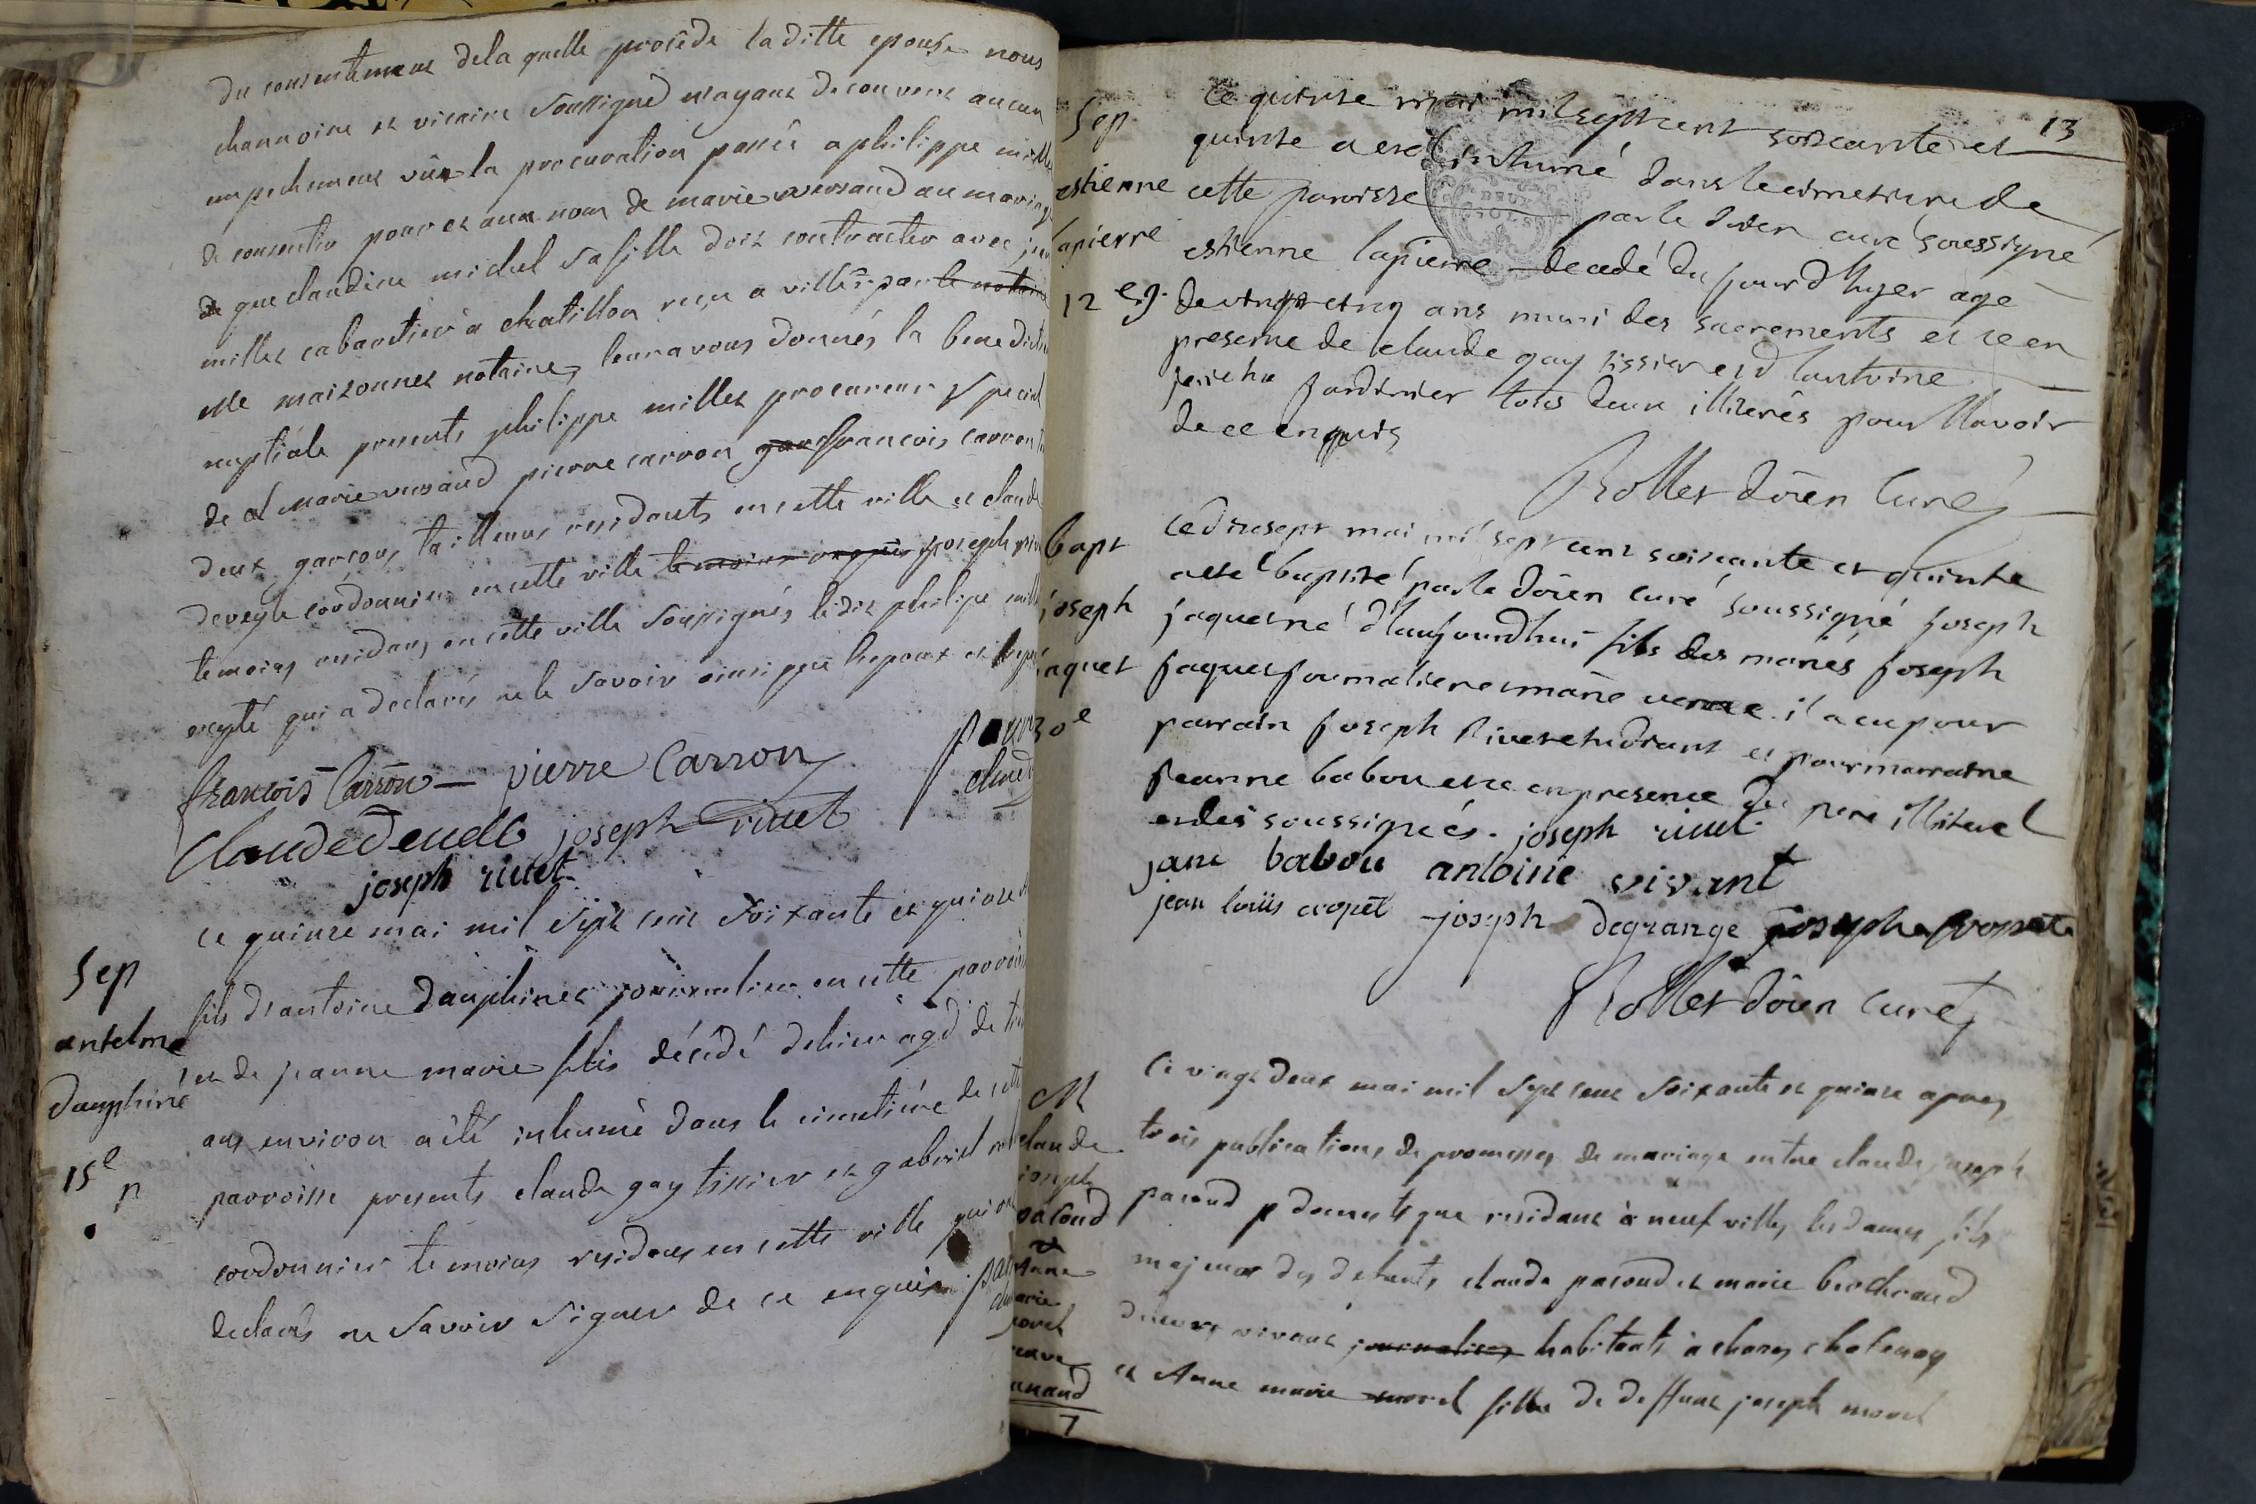 du consentement dela quelle procède laditte epouse nous
channoine et vicaire soussigné n'ayant decouvert aucun
empechement vûe la procuration passée a philippe millet
de consentir pour et aux nom de marie vuvraud au mariage
de que claudine michel sa fille doit contracter avec
millet cabaretier à chatillon reçu a ville par le notaire
maisonnet notaire, leur avons donnés la benediction
nuptiale presents philippe millet procureur special
de d marie vuvraud pierre carron francois carron
deux garçons tailleurs residants en cette ville et claude
deveyle cordonnier en cette ville temoins requis joseph
temoins residans en cette ville soussignés ledit philipe millet
excepté qui a declarés ne le savoir ainsi que l'epoux et
françois Carron pierre Carron
Claude deuele joseph riuet
joseph riuet
Sep
antelme
dauphiné
15e
p
ce quinze mai mil sept cent soixante et quinze
fils d'antoine dauphinet journalier en cette parroisse
et de jeanne marie felis décédé d'hier agé de
ans environ a été inhumé dans le cimetiére de cette
parroisse presents claude gay tissier et gabriel
cordonnier temoins residans en cette ville qui ont
declarés ne savoir signer de ce enquis
13
Sep
estienne
lapierre
12 e g.
ce quinze mai mil sept cent soixante et
quinze a eté inhumé dans le cimetiere de
cette paroisse par le doien curé soussigné
estienne lapierre decedé du jourd'hyer agé
de vingt cinq ans muni des sacrements et ce en
presence de claude gay tissier et d'antoine
jardinier tous deux illiterés pour l'avoir
de ce enquis
Rollet doïen Curé
bapt
joseph
jaquet
30e
ce dixsept mai mil sept cent soixante et quinze
a eté baptisé par le doïen curé soussigné joseph
jaquet né d'aujourdhui fils des mariés joseph
jaquet journalier et marie il a eu pour
parrain joseph rivet etudiant et pour marraine
jeanne babou et ce en presence du pere illiteré
et des soussignés. joseph riuet
jane babou antoine vivant
jean louis cropet joseph degrange joseph
Rollet doïen Curé
M
claude
joseph
pacoud
&
Anne
marie
morel
veuve
7
Ce vingt deux mai mil sept cent soixante et quinze apres
trois publications de promesses de mariage entre claude joseph
pacoud domestique residant à neufville les dames fils
majeur des defunts claude pacoud et marie brochand
vivant journaliers habitants à chatenay
et Anne marie morel fille de deffunt joseph morel